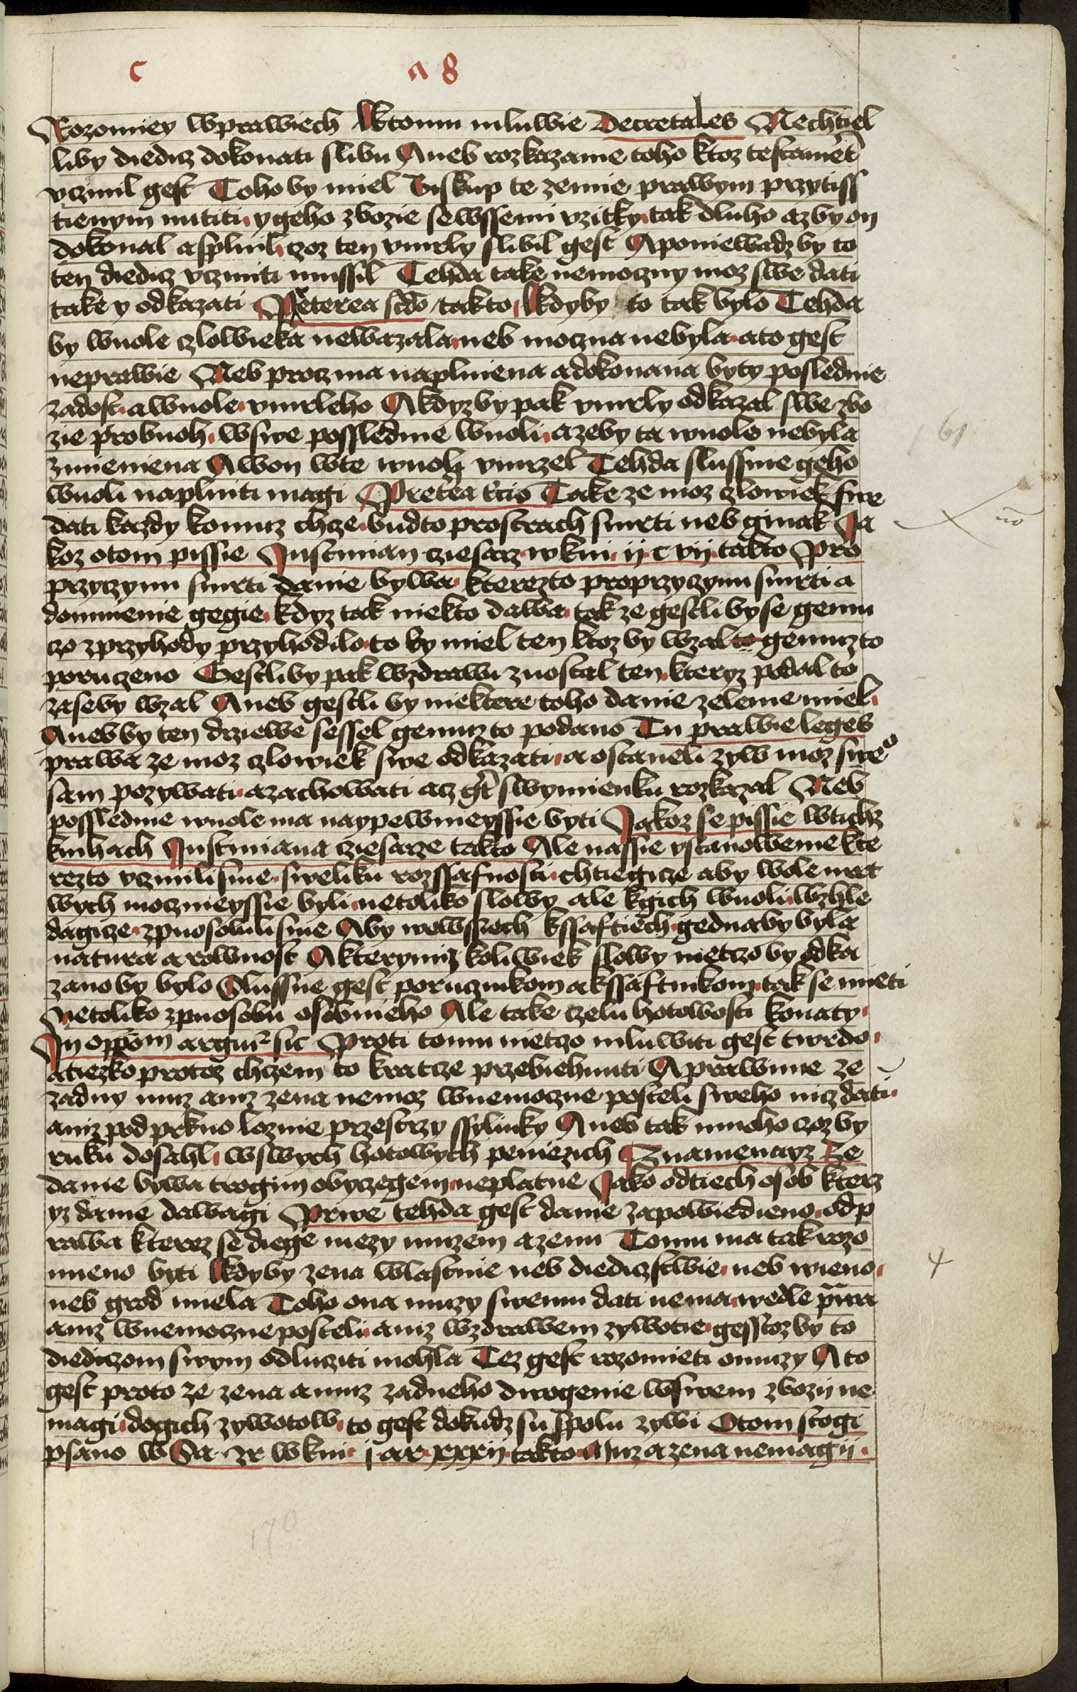 c a 8
Rozomiey wprawiech Ktomu mluwie Decretales Nechtiel
liby diedicz dokonati slibu Aneb rozkazanie toho ktoz testamēt
vczinil gest Toho by miel Biskup te zemie prawym przytiss
tienym nutiti y geho zbozie sewssemi vzitky tak dluho az by on
dokonal a splnil czoz ten vmrly slibil gest A poniewadz by to
ten diedicz vcziniti mussil Tehda take nemoczny moz swe dati
take y odkazati Preterea scdo takto Kdyby to tak bylo Tehda
by wuole czlowieka newazala neb moczna nebyla ato gest
neprawie Neb procz ma naplniena a dokonana byty poslednie
zadost a wuole vmrleho A kdyz by pak vmrly odkazal swe zbo
zie probuoh wswe possledinie wuoli azeby ta wuole nebyla
zmieniena A won wte wuoli vmrzel Tehda slussnie geho
wuoli naplniti magi Preterea tcio Take ze moz czlowiek swe
dati kazdy komuz chcze budto prostrach smrti neb ginak Ja
koz otom pissie Justinian cziesarz wkni ii c vij takto Pro
przyczynu smrti danie bywa kterezto proprzyczynu smrti a
domnienie gegie kdyz tak niekto dawa tak ze gestli by se gemu
czo zprzyhody przyhodilo to by miel ten ktoz by wzal to gemuz to
poruczeno Gestli by pak wzdrawi zuostal ten kteryz podal to
zaseby wzal Aneb gestli by niektere toho danie zelenie miel
Aneb by ten drziewe sessel gemuz to podano Tu prawie leges
prawa ze moz czlowiek swe odkazati a ostaneli zyw moz swe°
sam pozywati a zachowati acz gt swymienku rozkazal Neb
possledinie wuole ma naypewnieyssie byti Jakoz se pissie wtichz
knihach Justiniana cziesarze takto Ale nassie vstanowenie kte
rezto vczinili sme sweliku rozssafnosti chtiegicze aby wole mrt
wych moczneyssie byli netoliko slowy ale kgich wuoli wzhle
dagicze zpuosobili sme Aby wewssech kssaftiech gednaby byla
natura a rownost A kterymiz koliwiek slowy nietczo by odka
zano by bylo Slussne gest porucznikom a kssaftnikom tak se mieti
Netoliko zpuosobu osobnieho Ale take czelu hotowosti konaty
In oppōm arguir sic Proti tomu nietczo mluwiti gest twrdo
a tiezko protoz chczem to kratcze przebiehnuti A prawime ze
zadny muz aniz zena nemoz wnemoczne posteli sweho nicz dati
aniz pod prkno lozmie przestrzy ssylinky Aneb tak mnoho czoz by
ruku dosahl wswych hotowych peniezich Znamenayz Ze
danie bywa trogim obyczegem neplatne Jako odtiech osob kterz
yz danie dawagi Prwe tehda gest danie zapowiedieno odp
rawa kterez se diege mezy muzem a zenu Tomu ma tak rozo
mieno byti Kdyby zena wlastnie neb diediczstwie neb wieno
neb grod miela Toho ona muzy swemu dati nema wedle pwa
aniz wnemoczne posteli aniz wzdrawem zywotie gesstoz by to
diediczom swym odlucziti mohla Tez gest rozomieti omuzy A to
gest proto ze zena a muz zadneho dwogenie wswem zbozij ne
magi dogich zywotow to gest dokudz su spolu zywi Otom stogi
psano w Sa zr wkni j ar xxxij takto Muz a zena nemagij
170